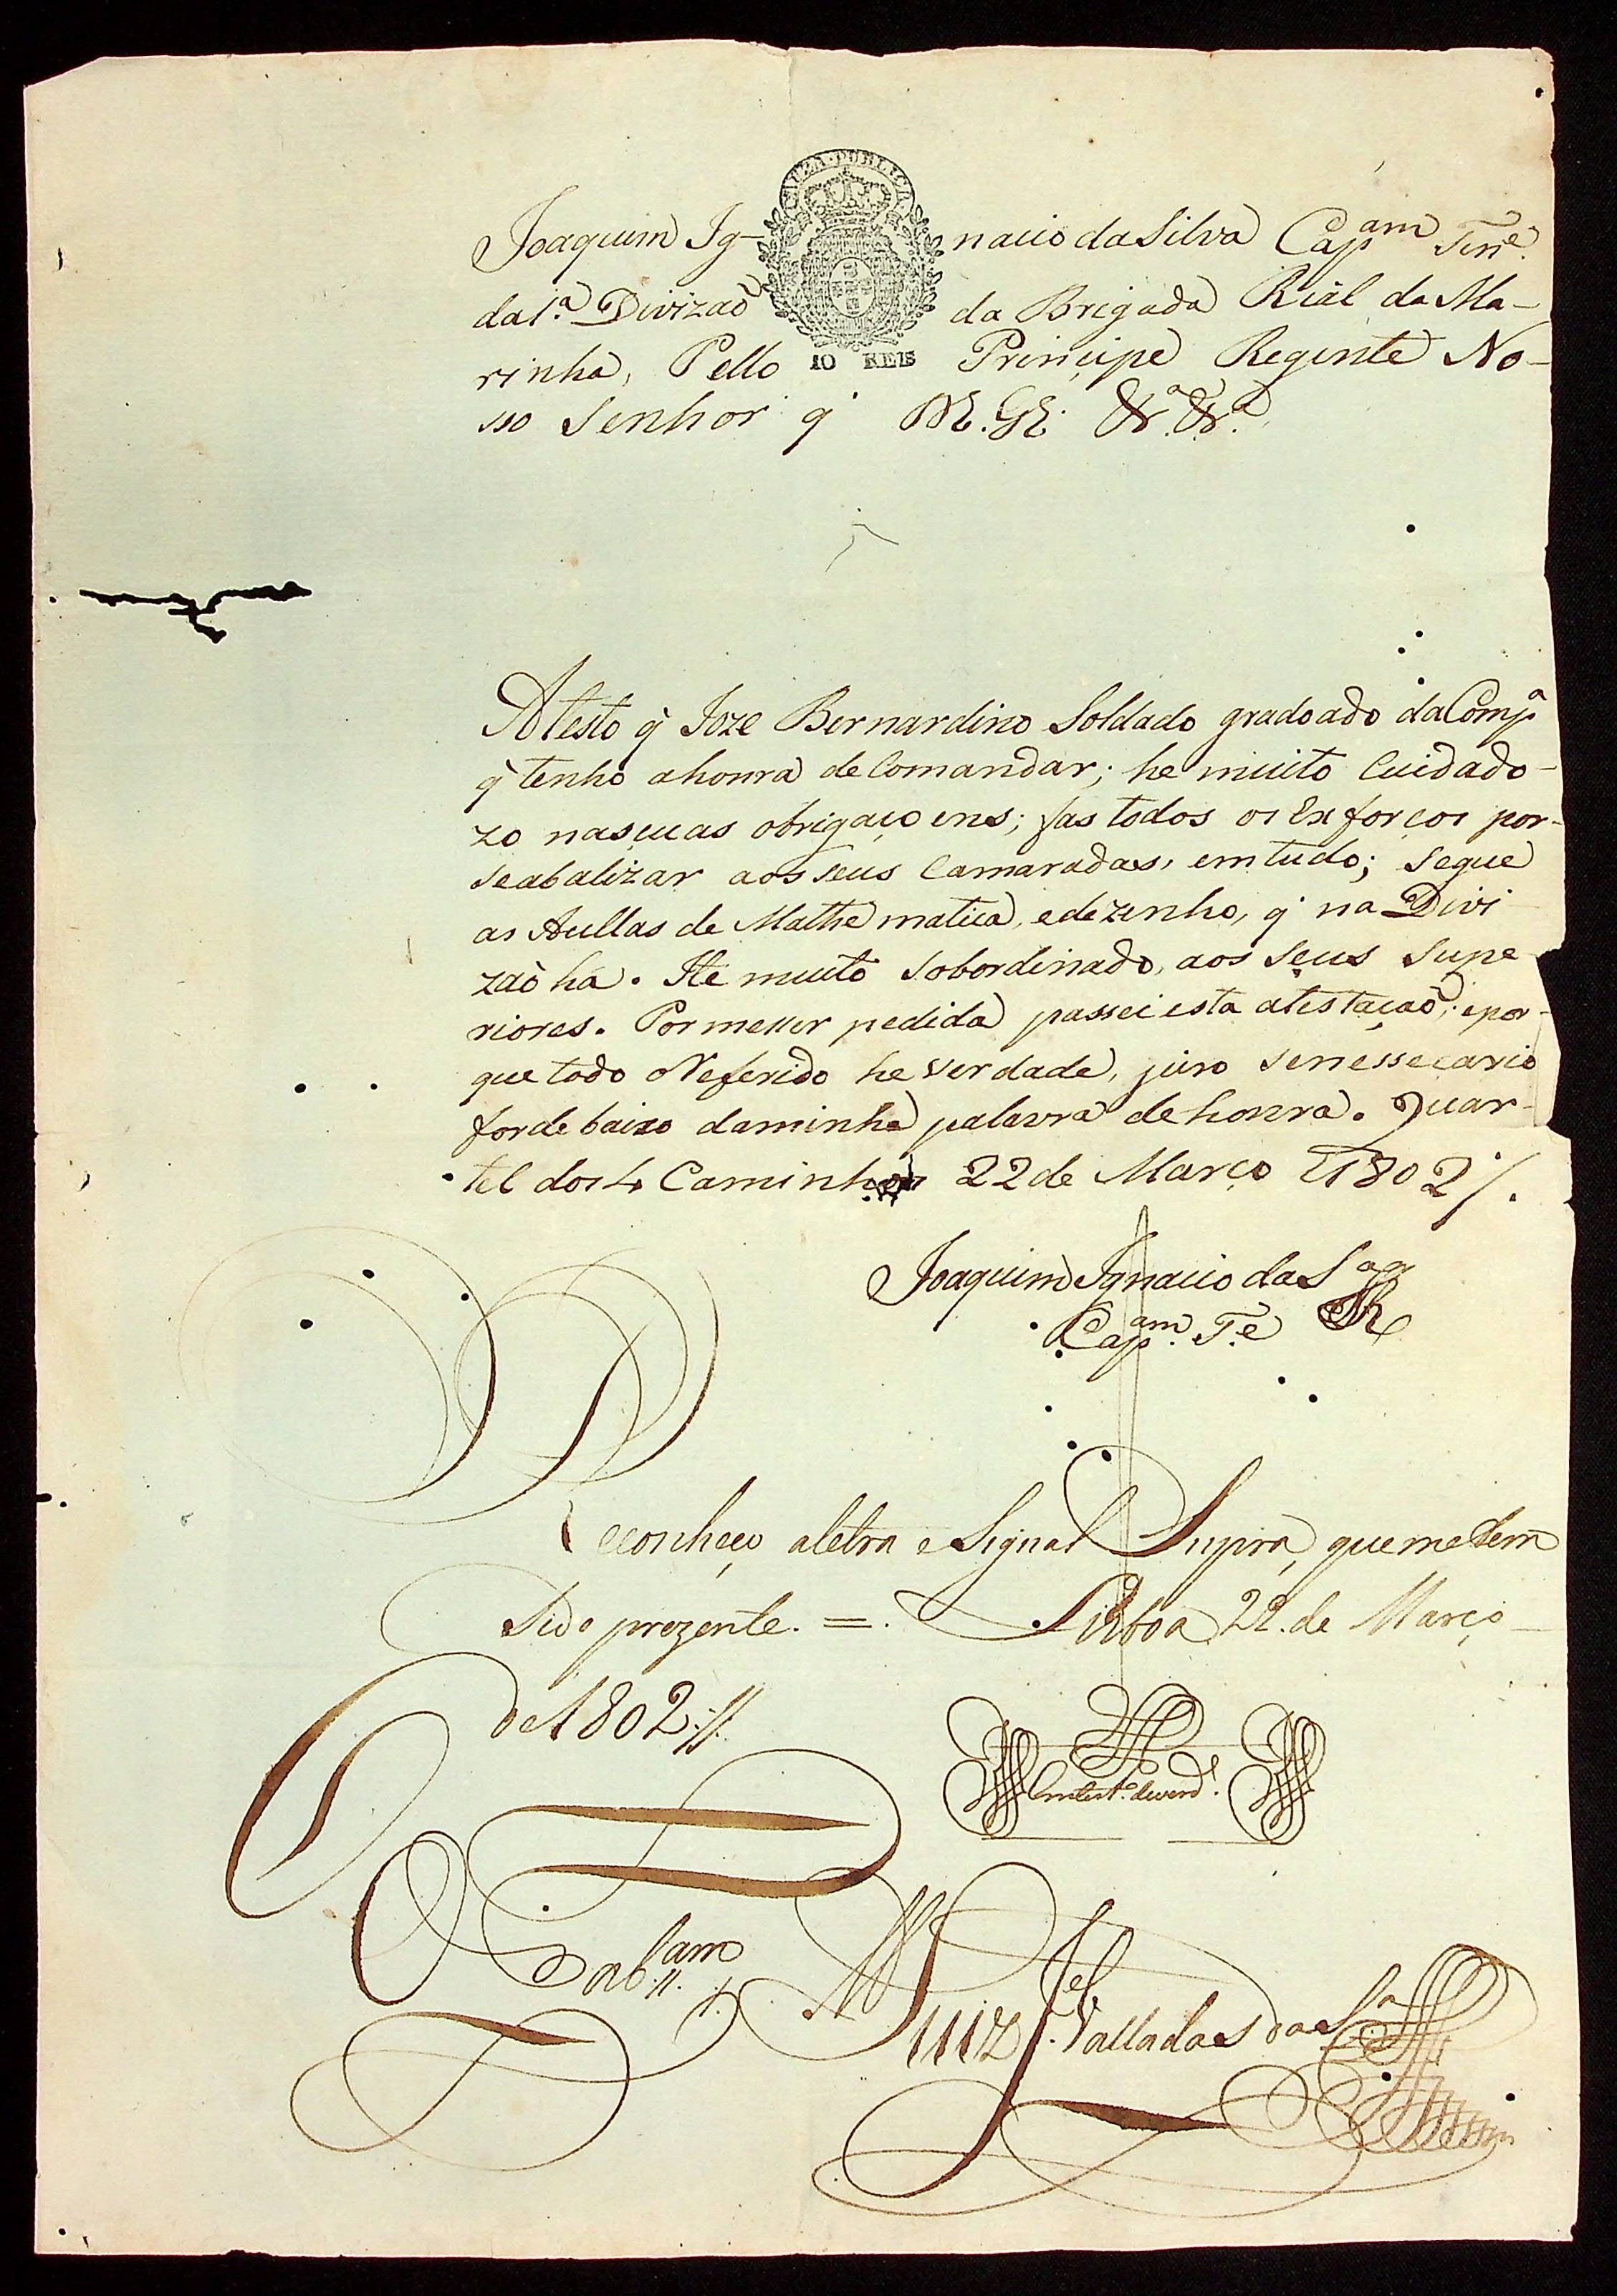 CAUZA·PUBLICA
Joaquim Ig-nacio da Silva Cap.am Ten.e
da 1.ª Divizaõ da Brigada Rial da Ma-
rinha, Pello 10 REIS Principe Reginte No-
sso Senhor q' D.s G.e &.ª &.ª
Atesto q̃ Joze Bernardino Soldado gradoado da Comp.ª
q̃ tenho a honra de Comandar; he muito Cuidado-
zo nas çuas obrigaçoens; fas todos os Exforços por-
se abalizar aos seus Camaradas, em tudo; segue
as Aullas de Mathematica, e dezenho, q' na Divi-
zaõ há. He muito sobordinado, aos seus Supe-
riores. Por me ser pedida passei esta atestaçaõ; e por-
que todo o Referido he verdade, juro se nessecario
for de baixo da minha palavra de honra. Quar-
tel dos 4 Caminhos 22 de Março 1802 /.
Joaquim Ignacio da S.a
Cap.am T.e
Reconheço a letra e Signal Supra, que me tem
Sido prezente. = Lisboa 22. de Março
de 1802 //.
Em test.o de verd.e
Tab.am
Luiz Valladas da S.a